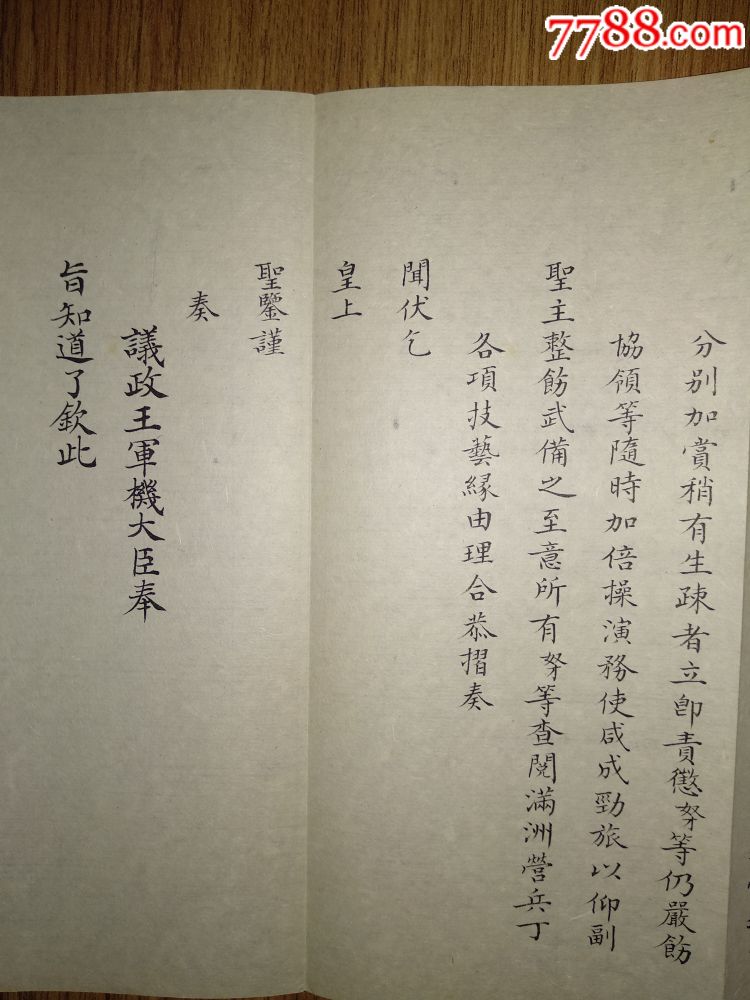 7788.com
分别加賞稍有生疎者立即責懲奴等仍嚴飭
協領等隨時加倍操演務使咸成勁旅以仰副
聖主整飭武備之至意所有奴等查閱滿洲營兵丁
各項技藝緣由理合恭摺奏
聞伏乞
皇上
聖鑒謹
奏
議政王軍機大臣奉
旨知道了欽此